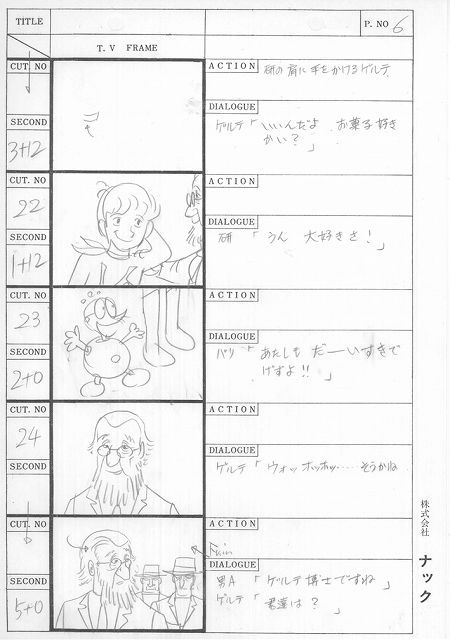 TITLE
P. NO 6
T. V FRAME
CUT. NO
ACTION 研の肩に手をかけるゲルテ
DIALOGUE
SECOND
3+12
ゲルテ「いいんだよ お菓子好き
かい？」
CUT. NO
22
ACTION
DIALOGUE
SECOND
1+12
研 「うん 大好きさ！」
CUT. NO
23
ACTION
DIALOGUE
SECOND
2+0
パリ「あたしも だーいすきで
げすよ!!」
CUT. NO
24
ACTION
DIALOGUE
SECOND
ゲルテ「ウォッホッホッ……そうかね
CUT. NO
ACTION
DIALOGUE
SECOND
5+0
男A 「ゲルテ博士ですね」
ゲルテ「君達は？」
株式会社 ナック